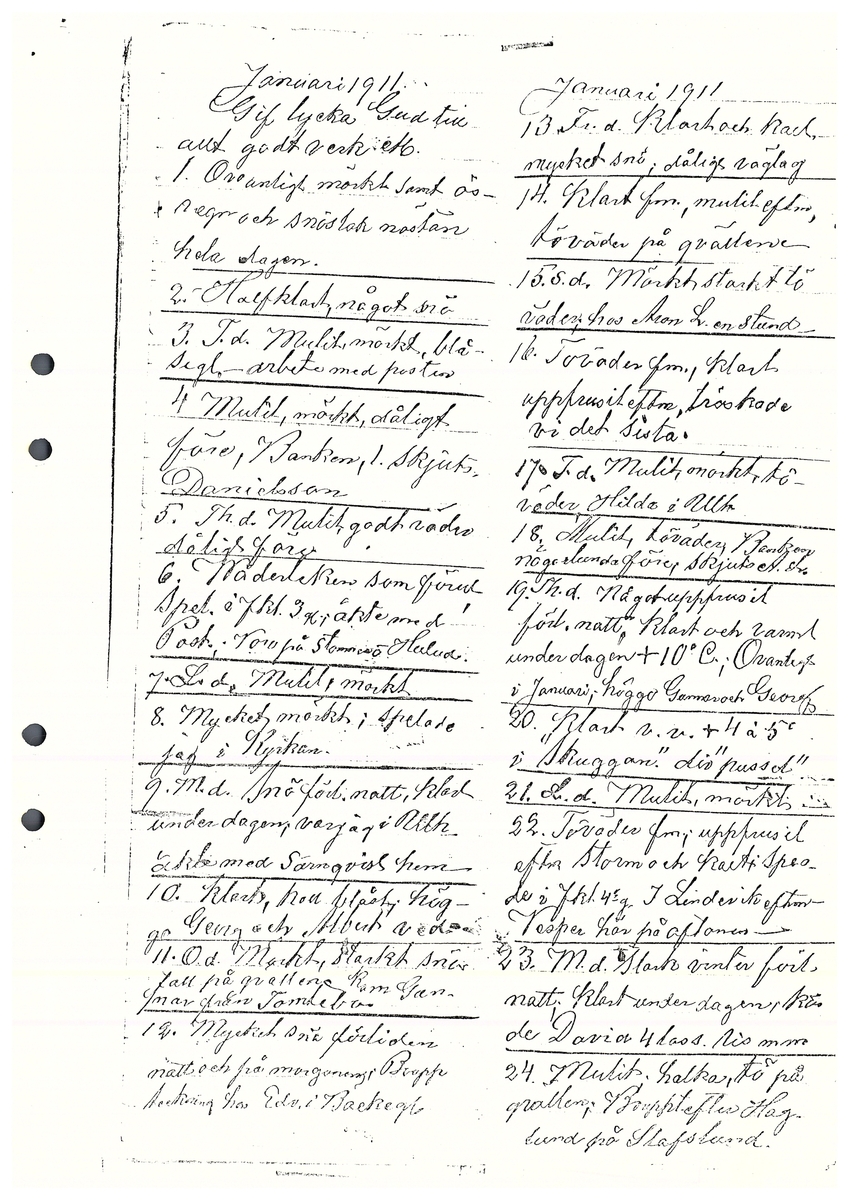 Januari 1911.
Gif lycka Gud till
allt godt verk etc.
1. Ovanligt mörkt samt ös-
regn och snöslask nästan
hela dagen.
2. Halfklart, något snö
3. T.d. Mulit, mörkt, blå-
segl. arbete med posten
4 Mulit, mörkt, dåligt
före, Banken, 1. skjuts.
Danielsson
5. Th.d. Mulit, godt väder
dåligt före
6. Väderleken som förut
Spel. i Fkl. 3 g; åkte med
Post.; Voro på Stommen Hulud.
7. L.d. Mulit, mörkt
8. Mycket mörkt; spelade
jag i Kyrkan.
9. M.d. Snö förl. natt, klart
under dagen; var jag i Ulk
åkte med Särnqvist hem
10. Klart, kall blåst; hög-
go Georg och Albert ved
11. O.d. Mörkt, starkt snö-
fall på qvällen, kom Gun-
nar från Tomtebo
12. Mycket snö förliden
natt och på morgonen; Boupp
teckning hos Edv. i Backegl
Januari 1911
13. Fr.d. Klart och kallt
mycket snö; dåligt väglag
14. Klart fm., mulit eftm,
töväder på qvällene
15. S.d. Mörkt, starkt tö
väder; hos Aron L. en stund
16. Töväder fm., klart
uppfrusit eftm, tröskade
vi det sista.
17. T.d. Mulit, mörkt, tö-
väder, Hilda i Ulk
18. Mulit, töväder, Banken
någorlunda före, skjuts
19. Th.d. Något uppfrusit
förl. natt, klart och varmt
under dagen +10° C.; Ovanligt
i Januari; höggo Gunnar och Georg
20. Klart v. v. + 4 à 5°
i "Skuggan". div "pussel"
21. L.d. Mulit, mörkt
22. Töväder fm.; uppfrusit
eftm storm och kallt; spela-
de i Fkl. 4 g J Linder eftm
Vesper här på aftonen
23. M.d. Stark vinter förl.
natt; klart under dagen; kör-
de David 4 lass. lis mm
24. Mulit. halka, tö på
qvällen; Bouppt efter Hag-
lund på Stafslund.